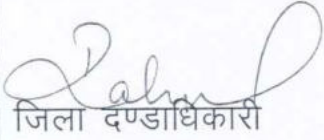 जिला दण्डाधिकारी